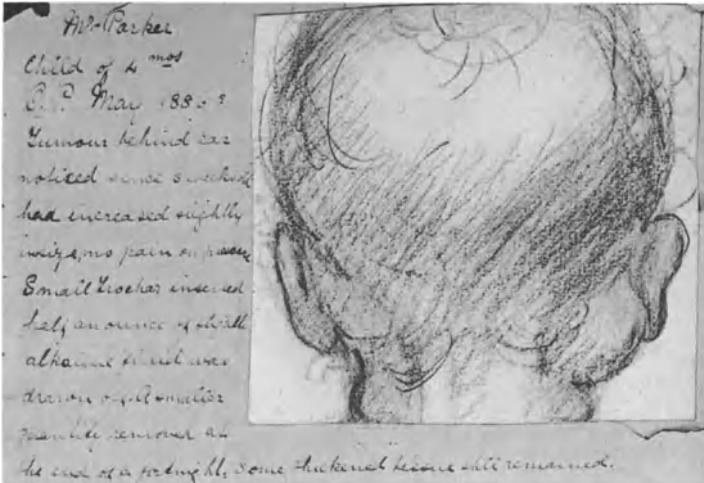 Mr Parker
Child of 4 mos
May 188
Tumour behind ear
noticed since 3 weeks
had increased slightly
in size, no pain on
Small Trochar inserted
half an ounce of
alkaline fluid was
drawn off. A smaller
quantity removed at
the end of a fortnight, some thickened tissue still remained.